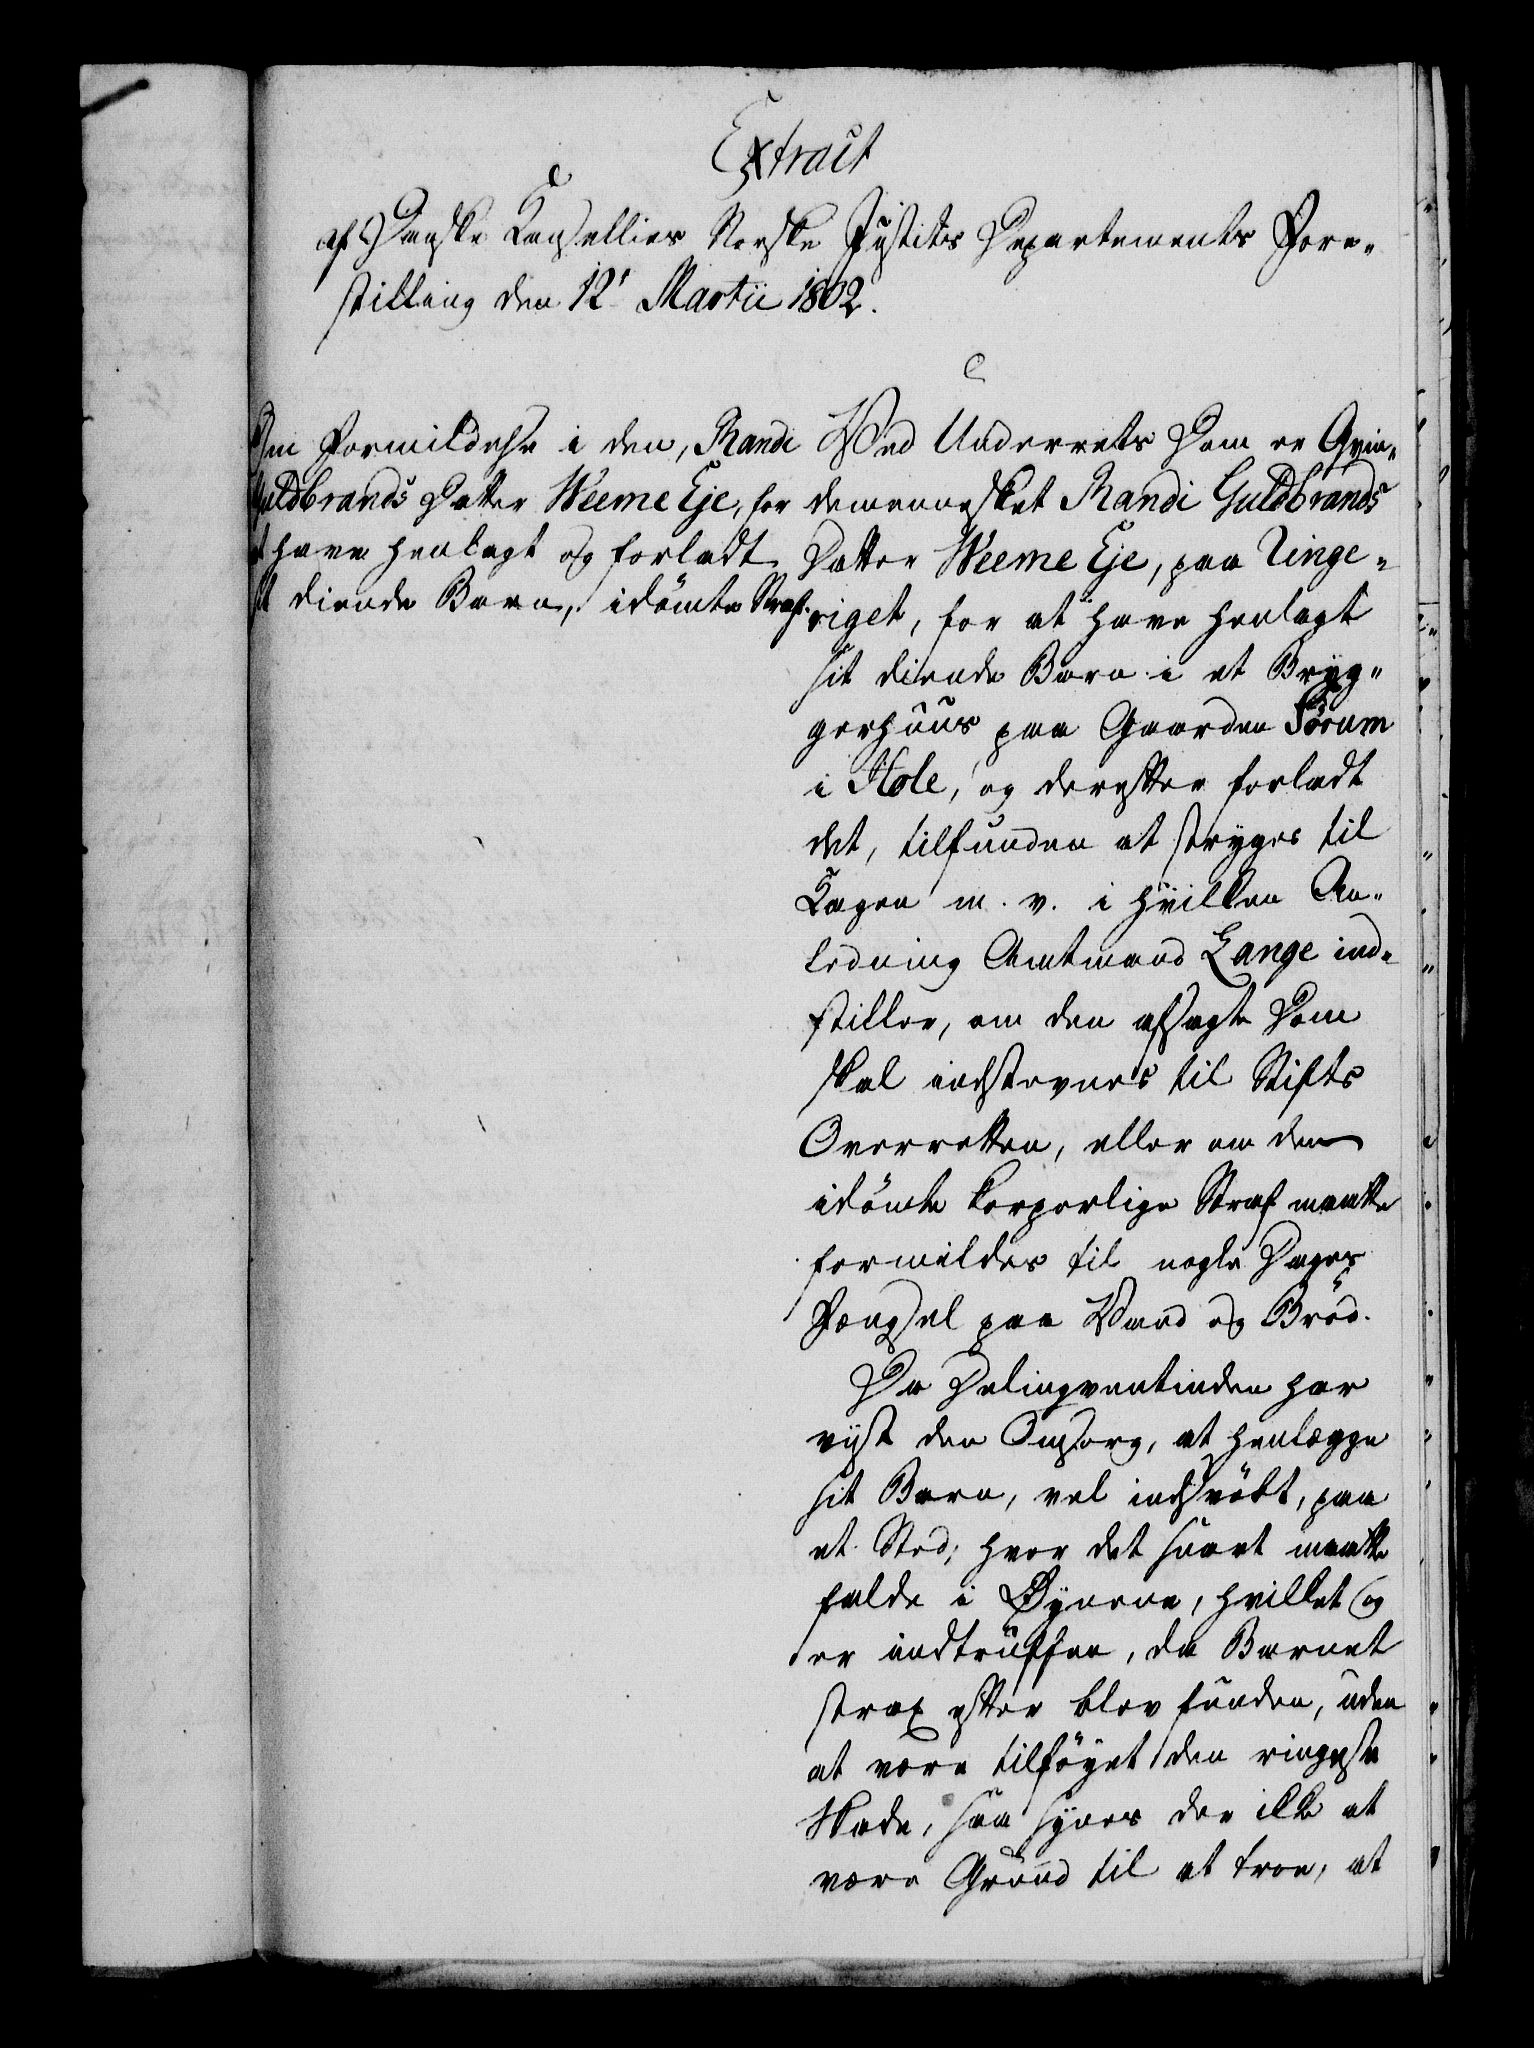 Extract
af Danske Cancellies Norske Justits Departements Fore-
stilling den 12' Martii 1802.
Om Formildelse i den, Randi
Guldbrands Datter Weeme Eje, for
at have henlagt og forladt
sit diende Barn, idømte Straf.
Ved Underrets Dom er Qvin-
demennesket Randi Guldbrands
Datter Weeme Eje, paa Ringe-
riget, for at have henlagt
sit diende Barn i et Bryg-
gerhuus paa Gaarden Sørum
i Hole, og derefter forladt
det, tilfunden at stryges til
Kagen m. v. i hvilken An-
ledning Amtmand Lange ind-
stiller, om den afsagte Dom
skal indstevnes til Stifts
Overretten, eller om den
idømte korporlige Straf maatte
formildes til nogle Dages
Fængsel paa Vand og Brød.
Da Delinqventinden har
viist den Omsorg, at henlægge
sit Barn, vel indsvøbt, paa
et Sted, hvor det snart maatte
falde i Øynene, hvilket og
er indtruffen, da Barnet
strax efter blev funden, uden
at være tilføyet den ringeste
Skade, saa synes der ikke at
være Grund til at troe, at